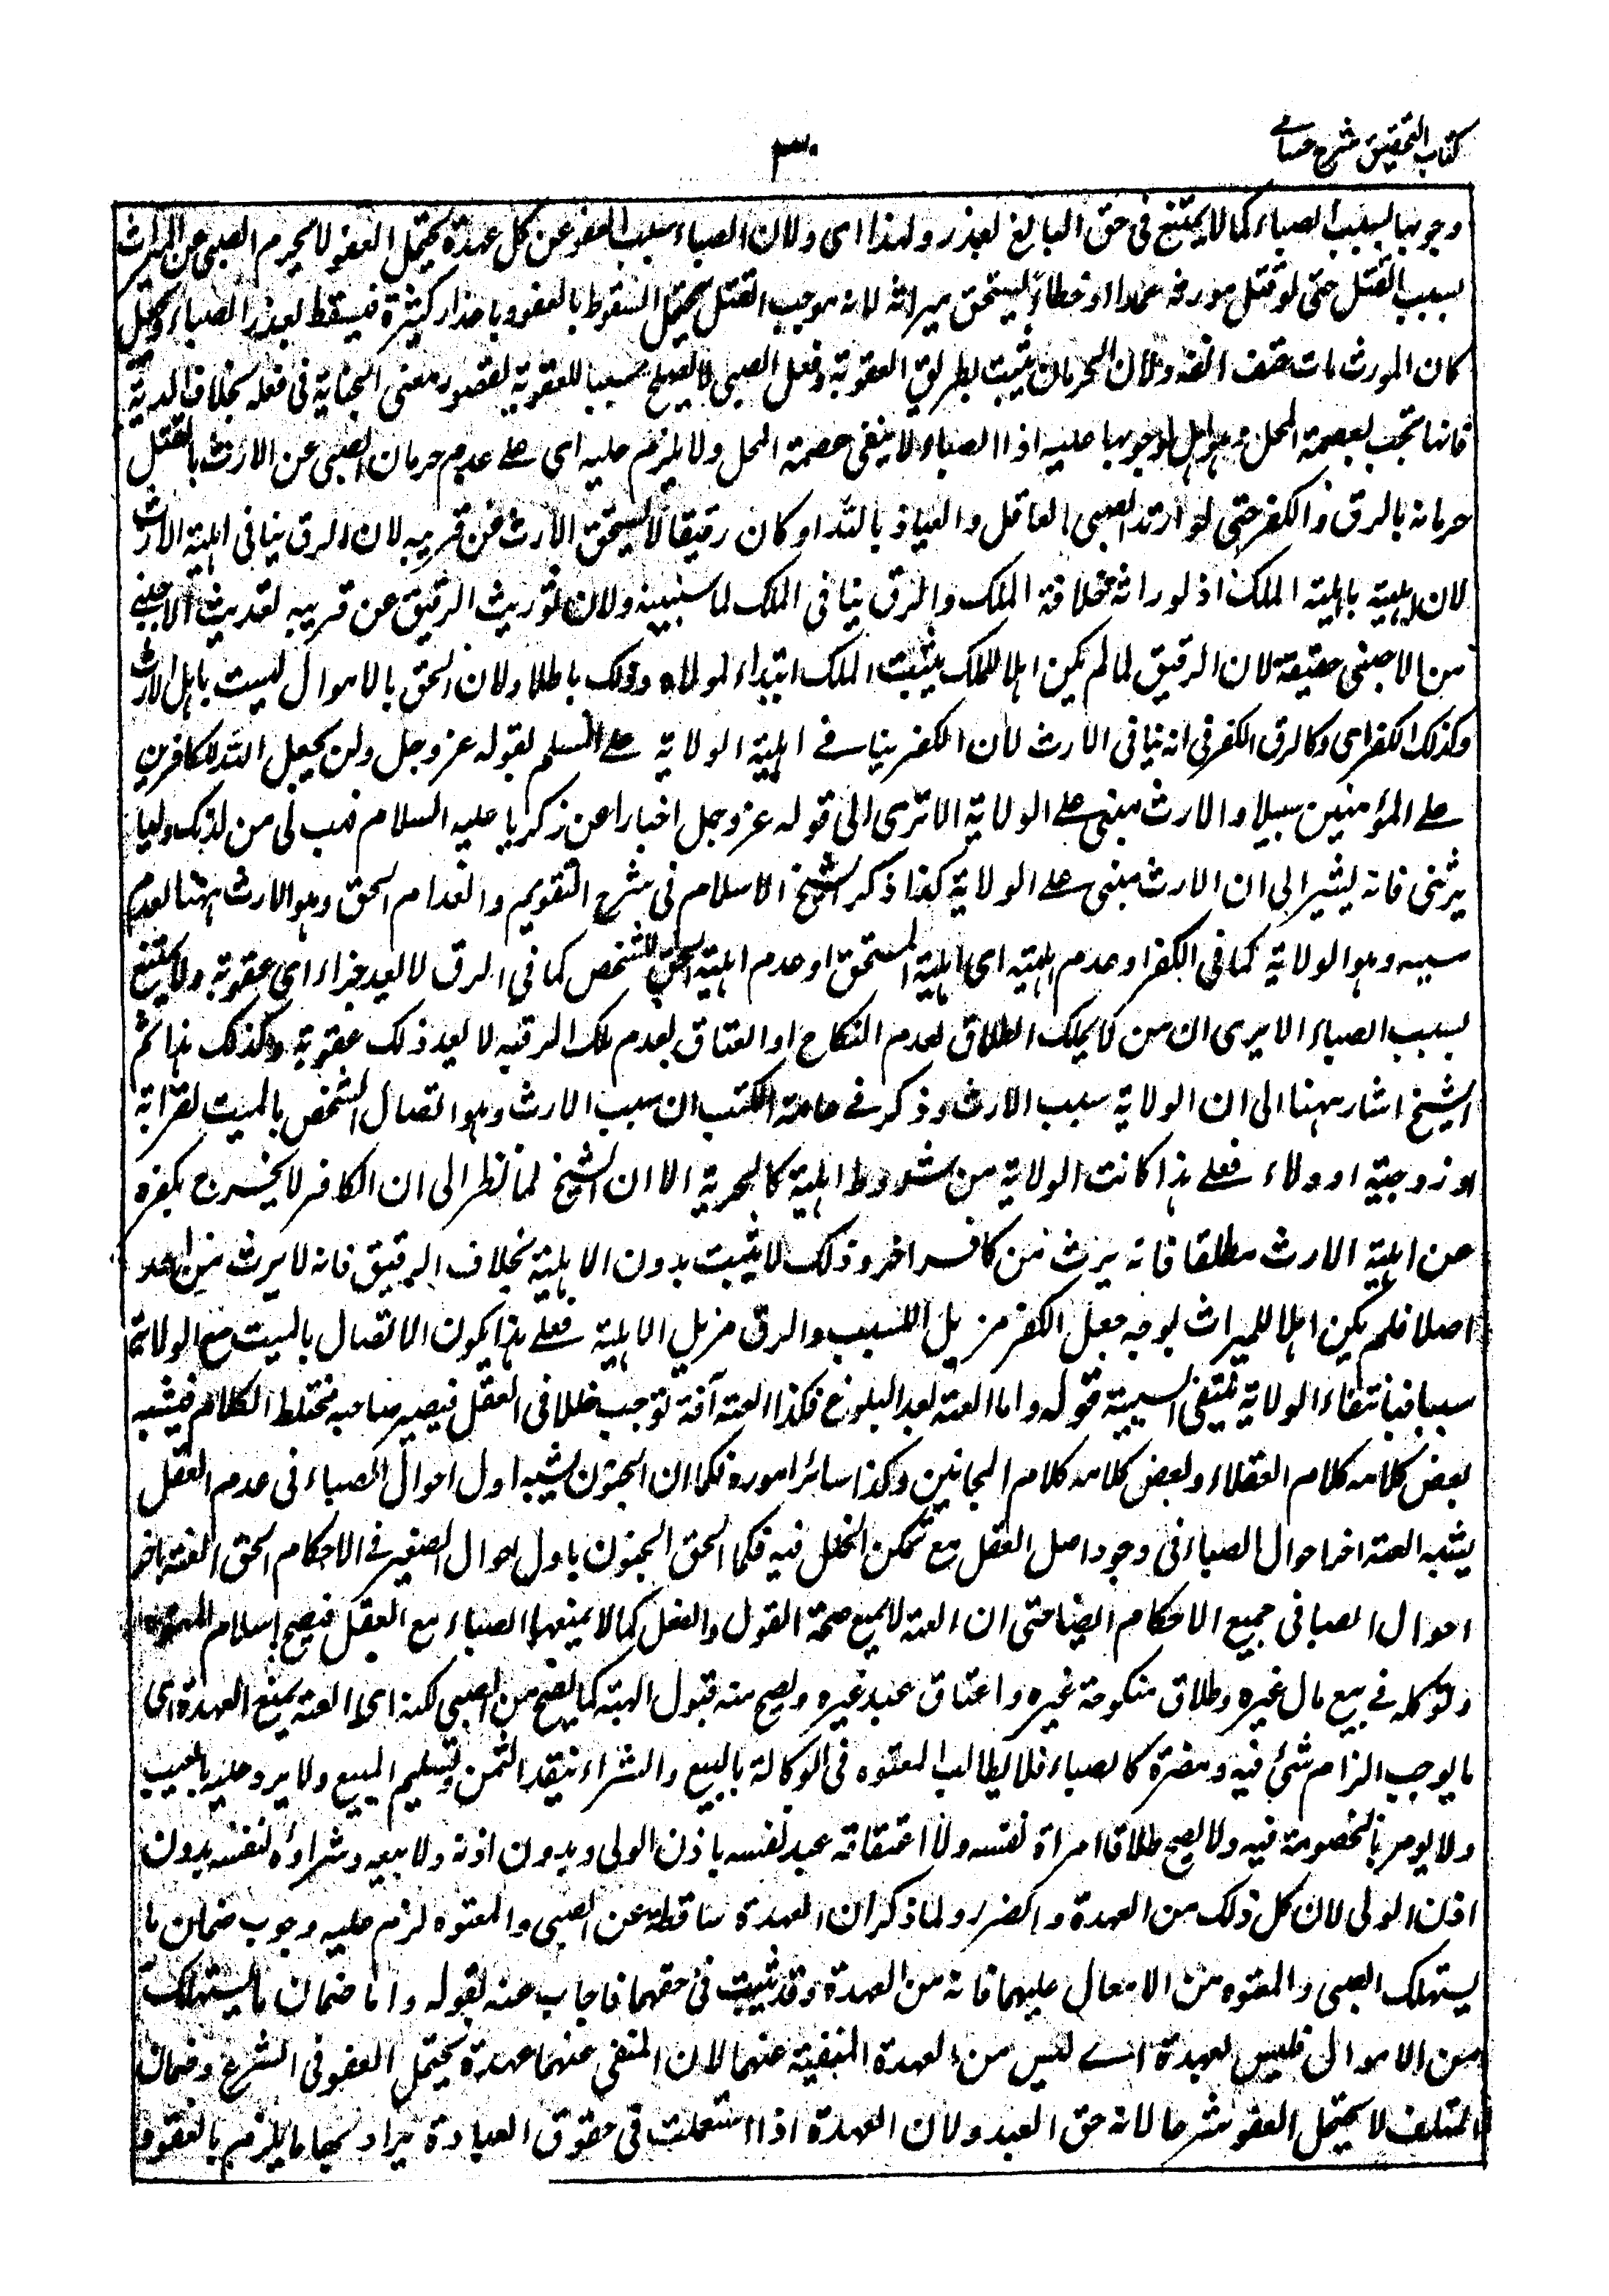 كتاب التحقيق شرح حسامي
٣٠
وجوبها بسبب الصباء كما لا يمتنع فى حق البالغ بعذر ولهذا اى ولان الصباء سبب العفو عن كل عهدة يحتمل العفو لا يحرم الصبى عن الميراث
بسبب القتل حتى لو قتل مورثه عمدا او خطأ يستحق ميراثه لانه موجب القتل يحتمل السقوط بالعفو وباعذار كثيرة فيسقط بعذر الصباء ويجعل
كان المورث مات حتف انفه ولان الحرمان يثبت بطريق العقوبة وفعل الصبى لا يصلح سببا للعقوبة لقصور معنى الجناية فى فعله بخلاف الدية
فانها تجب بعصمة المحل وهو اهل لوجوبها عليه اذ الصباء لا ينفى عصمة المحل ولا يلزم عليه اى على عدم حرمان الصبى عن الارث بالقتل
حرمانه بالرق والكفر حتى لو ارتد الصبى العاقل والعياذ بالله او كان رقيقا لا يستحق الارث من قريبه لان الرق ينافى اهلية الارث
لان اهليته باهلية الملك اذ لوراثة خلافة الملك والرق ينافى الملك لما سنبينه ولان توريث الرقيق عن قريبه توريث الاجنبى
من الاجنبى حقيقة لان الرقيق لما لم يكن اهلا للملك يثبت الملك ابتداء لمولاه وذلك باطل ولان الحق بالاموال ليست باهل الارث
وكذلك الكفر اى وكالرق الكفر فى انه ينافى الارث لان الكفر ينافے اهلية الولاية على المسلم لقوله عز وجل ولن يجعل الله للكافرين
على المؤمنين سبيلا والارث مبنى على الولاية الا ترى الى قوله عز وجل اخبارا عن زكريا عليه السلام فهب لى من لدنك وليا
يرثنى فانه يشير الى ان الارث مبنى على الولاية كذا ذكر شيخ الاسلام فى شرح التقويم وانعدام الحق وهو الارث ههنا لعدم
سببه وهو الولاية كما فى الكفر او عدم اهليته اى اهلية المستحق او عدم اهلية الحق للشخص كما فى الرق لا يعد جزاء اى عقوبة ولا يمتنع
بسبب الصباء الا يرى ان من لا يملك الطلاق لعدم النكاح او العتاق لعدم ملك الرقبه لا يعد ذلك عقوبة وكذلك هذا ثم
الشيخ اشار ههنا الى ان الولاية سبب الارث وذكر فے عامة الكتب ان سبب الارث وهو اتصال الشخص بالميت لقرابة
او زوجية او ولاء فعلے هذا كانت الولاية من شروط اهلية كالحرية الا ان الشيخ لما نظر الى ان الكافر لا يخرج بكفره
عن اهلية الارث مطلقا فانه يرث من كافر اخر وذلك لا يثبت بدون الاهلية بخلاف الرقيق فانه لا يرث من احد
اصلا فلم يكن اهلا للميراث بوجه جعل الكفر مزيل السبب والرق مزيل الاهلية فعلے هذا يكون الاتصال بالميت مع الولاية
سببا فبانتفاء الولاية تنتفى السببية قوله واما العته بعد البلوغ فكذا العته آفة توجب خللا فى العقل فيصير صاحبه مختلط الكلام فيشبه
بعض كلامه كلام العقلاء وبعض كلامه كلام المجانين وكذا سائر اموره فكما ان الجنون يشبه اول احوال الصباء فى عدم العقل
يشبه العته اخر احوال الصباء فى وجود اصل العقل مع تمكن الخلل فيه فكما الحق الجنون باول احوال الصغير فے الاحكام الحق العته باخر
احوال الصبا فى جميع الاحكام ايضا حتى ان العته لا يمنع صحة القول والفعل كما لا يمنعها الصباء مع العقل فيصح اسلام المعتوه
وتوكله فے بيع مال غيره وطلاق منكوحة غيره واعتاق عبد غيره ويصح منه قبول الهبة كما يصح من الصبى لكنه اى العته يمنع العهدة اى
ما يوجب الزام شئ فيه ومضرة كالصباء فلا يطالب المعتوه فى الوكالة بالبيع والشراء بنقد الثمن وتسليم المبيع ولا يرد عليه بالعيب
ولا يومر بالخصومة فيه ولا يصح طلاق امراة نفسه ولا اعتاقه عبد نفسه باذن الولى وبدون اذنه ولا بيعه وشراؤه لنفسه بدون
اذن الولى لان كل ذلك من العهدة والضرر ولما ذكر ان العهدة ساقطة عن الصبى والمعتوه لزم عليه وجوب ضمان ما
يستهلك الصبى والمعتوه من الاموال عليهما فانه من العهدة وقد ثبت فى حقهما فاجاب عنه بقوله واما ضمان ما يستهلك
من الاموال فليس بعهدة اے ليس من العهدة المنفية عنهما لان المنفى عنهما عهدة يحتمل العفو فى الشرع وضمان
المتلف لا يحتمل العفو شرعا لانه حق العبد ولان العهدة اذا استعملت فى حقوق العباد يراد بها ما يلزم بالعقود